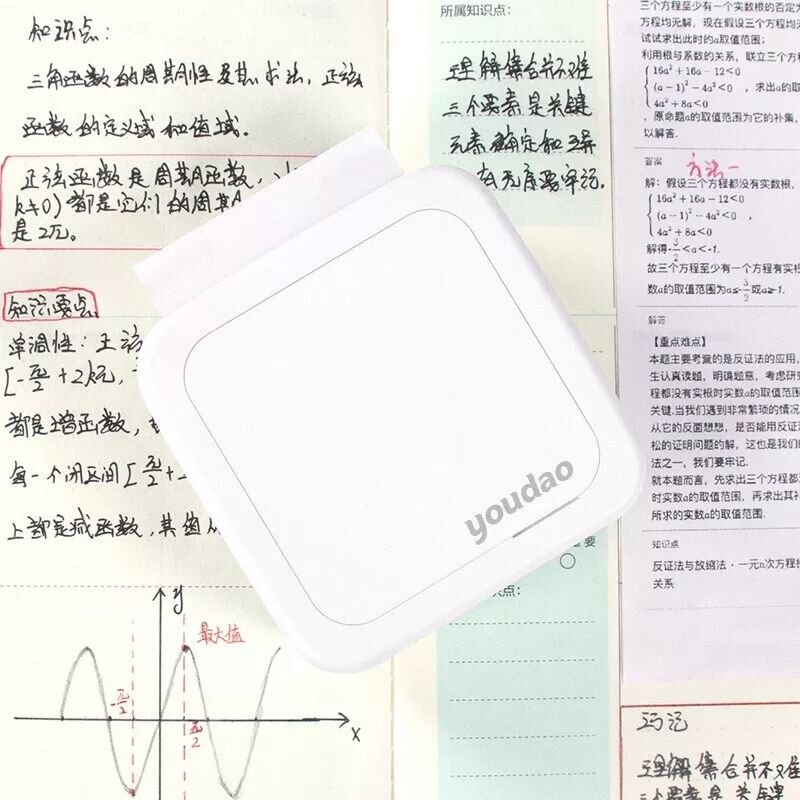 知识点：
三角函数的周期性及其求法，正弦
函数的定义域和值域。
正弦函数是周期函数，
k≠0）都是它们的周期
是2π。
知识要点
单调性：正弦
[-π/2+2kπ，
都是增函数，
每一个闭区间[π/2+
上都是减函数，其值从
y
最大值
-π/2
π/2
x
所属知识点：
理解集合并不难
三个要素是关键
元素确定和互异
有无序要牢记.
youdao
重要
识点：
三个方程至少有一个实数根的否定为
方程均无解，现在假设三个方程均无
试试求出此时的a取值范围；
利用根与系数的关系，联立三个方程
16a²+16a-12<0
(a-1)²-4a²<0 ，求出a的取
4a²+8a<0
，原命题a的取值范围为它的补集，
以解答.
答案
方法一
解：假设三个方程都没有实数根，
16a²+16a-12<0
(a-1)²-4a²<0 ，
4a²+8a<0
解得-3/2<a<-1.
故三个方程至少有一个方程有实根
数a的取值范围为a≤-3/2或a≥-1.
解答
【重点难点】
本题主要考查的是反证法的应用，
生认真读题，明确题意，考虑研究
程都没有实根时实数a的取值范围
关键.当我们遇到非常繁琐的情况
从它的反面想想，是否能用反证法
松的证明问题的解，这也是我们的
法之一，我们要牢记.
就本题而言，先求出三个方程都没
时实数a的取值范围，再求出其补
所求的实数a的取值范围.
知识点
反证法与放缩法·一元n次方程根
关系
巧记
理解集合并不难
三个要素是关键